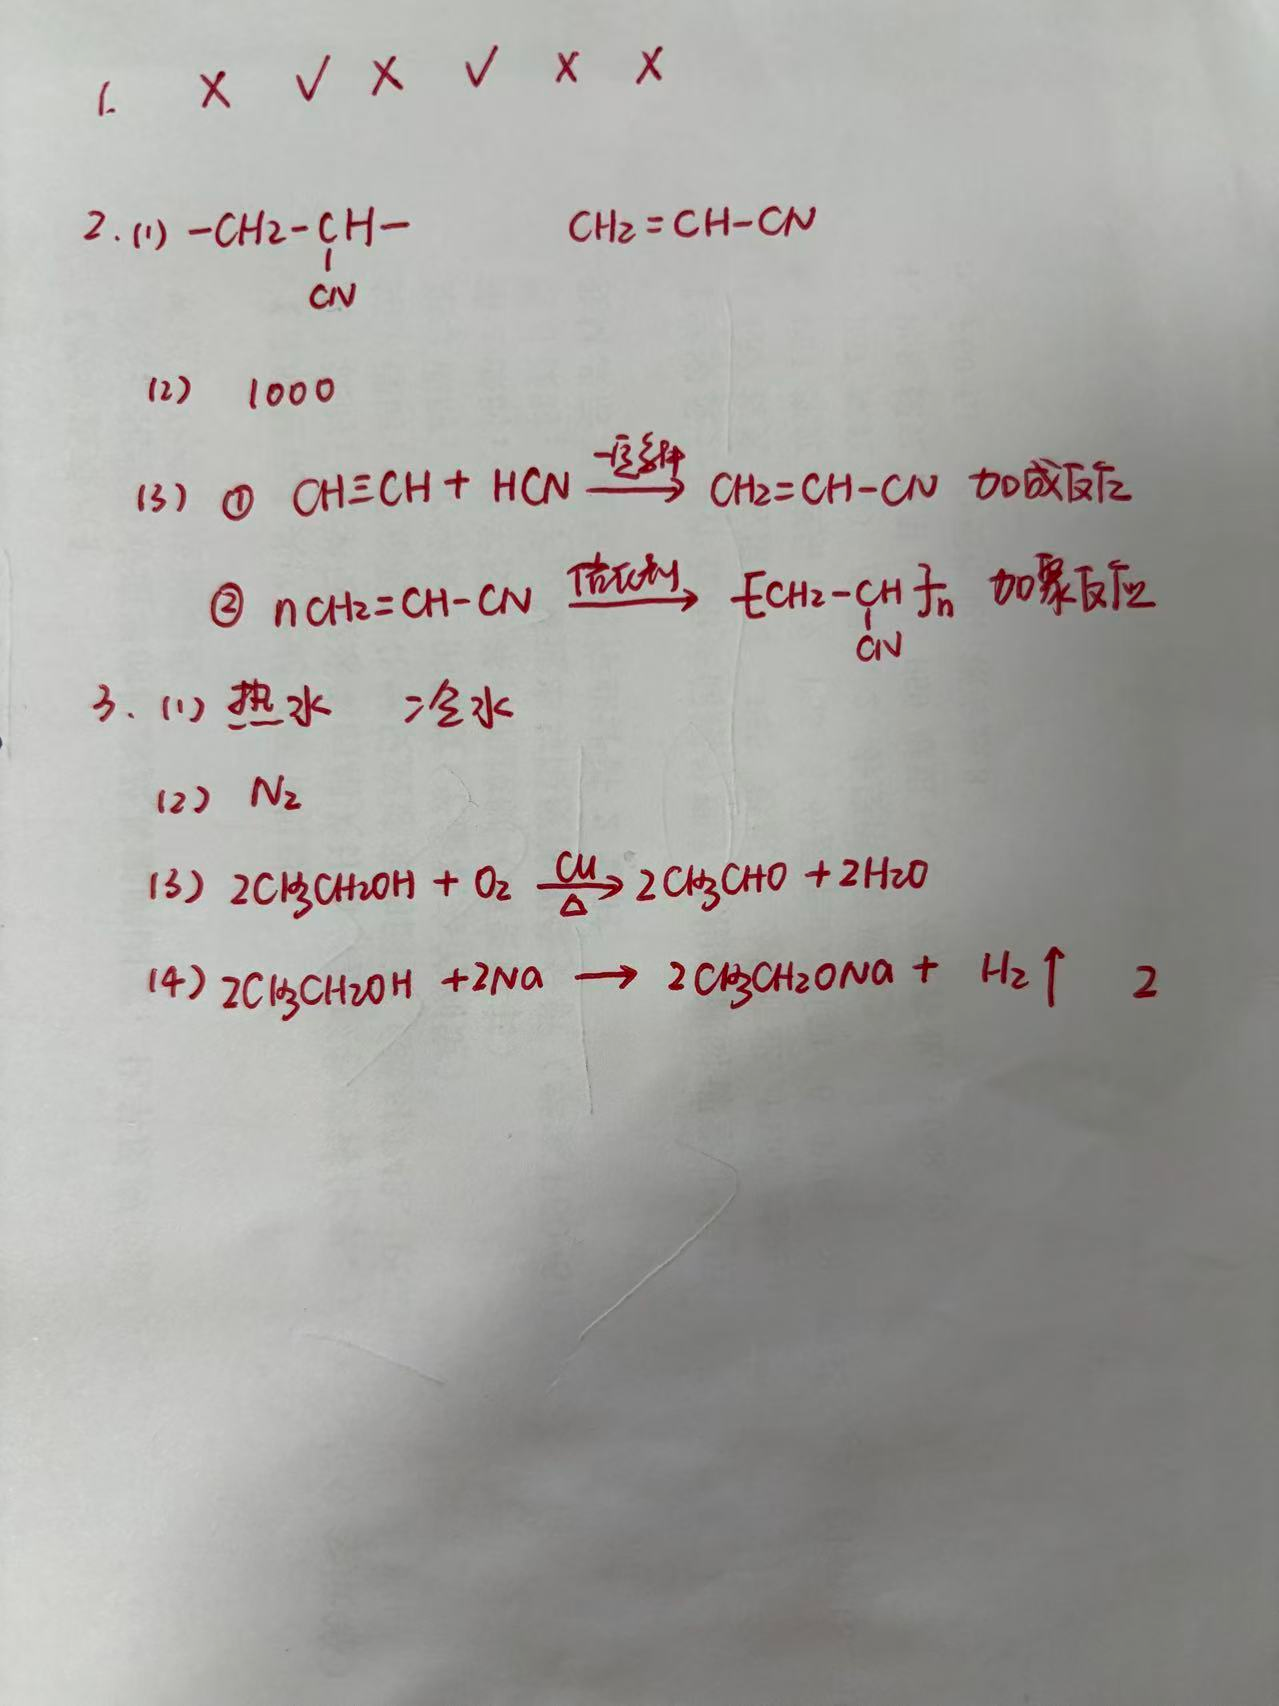 1. × √ × √ × ×
2. (1) -CH2-CH- CH2=CH-CN
CN
(2) 1000
(3) ① CH≡CH + HCN 一定条件→ CH2=CH-CN 加成反应
② nCH2=CH-CN 催化剂→ [CH2-CH]n 加聚反应
CN
3. (1) 热水 冷水
(2) N2
(3) 2CH3CH2OH + O2 Cu→△ 2CH3CHO + 2H2O
(4) 2CH3CH2OH +2Na → 2CH3CH2ONa + H2↑ 2